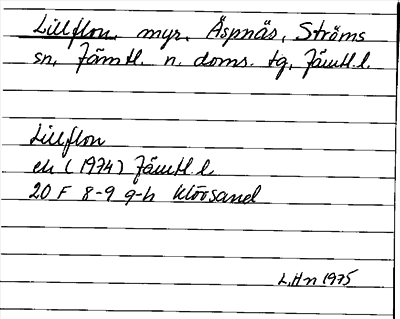 Lillflon, myr, Äspnäs, Ströms
sn, Jämtl. n. doms. tg, Jämtl. l.
Lillflon
ek (1974) Jämtl. l.
20 F 8-9 g-h Klövsand
L.Hn 1975